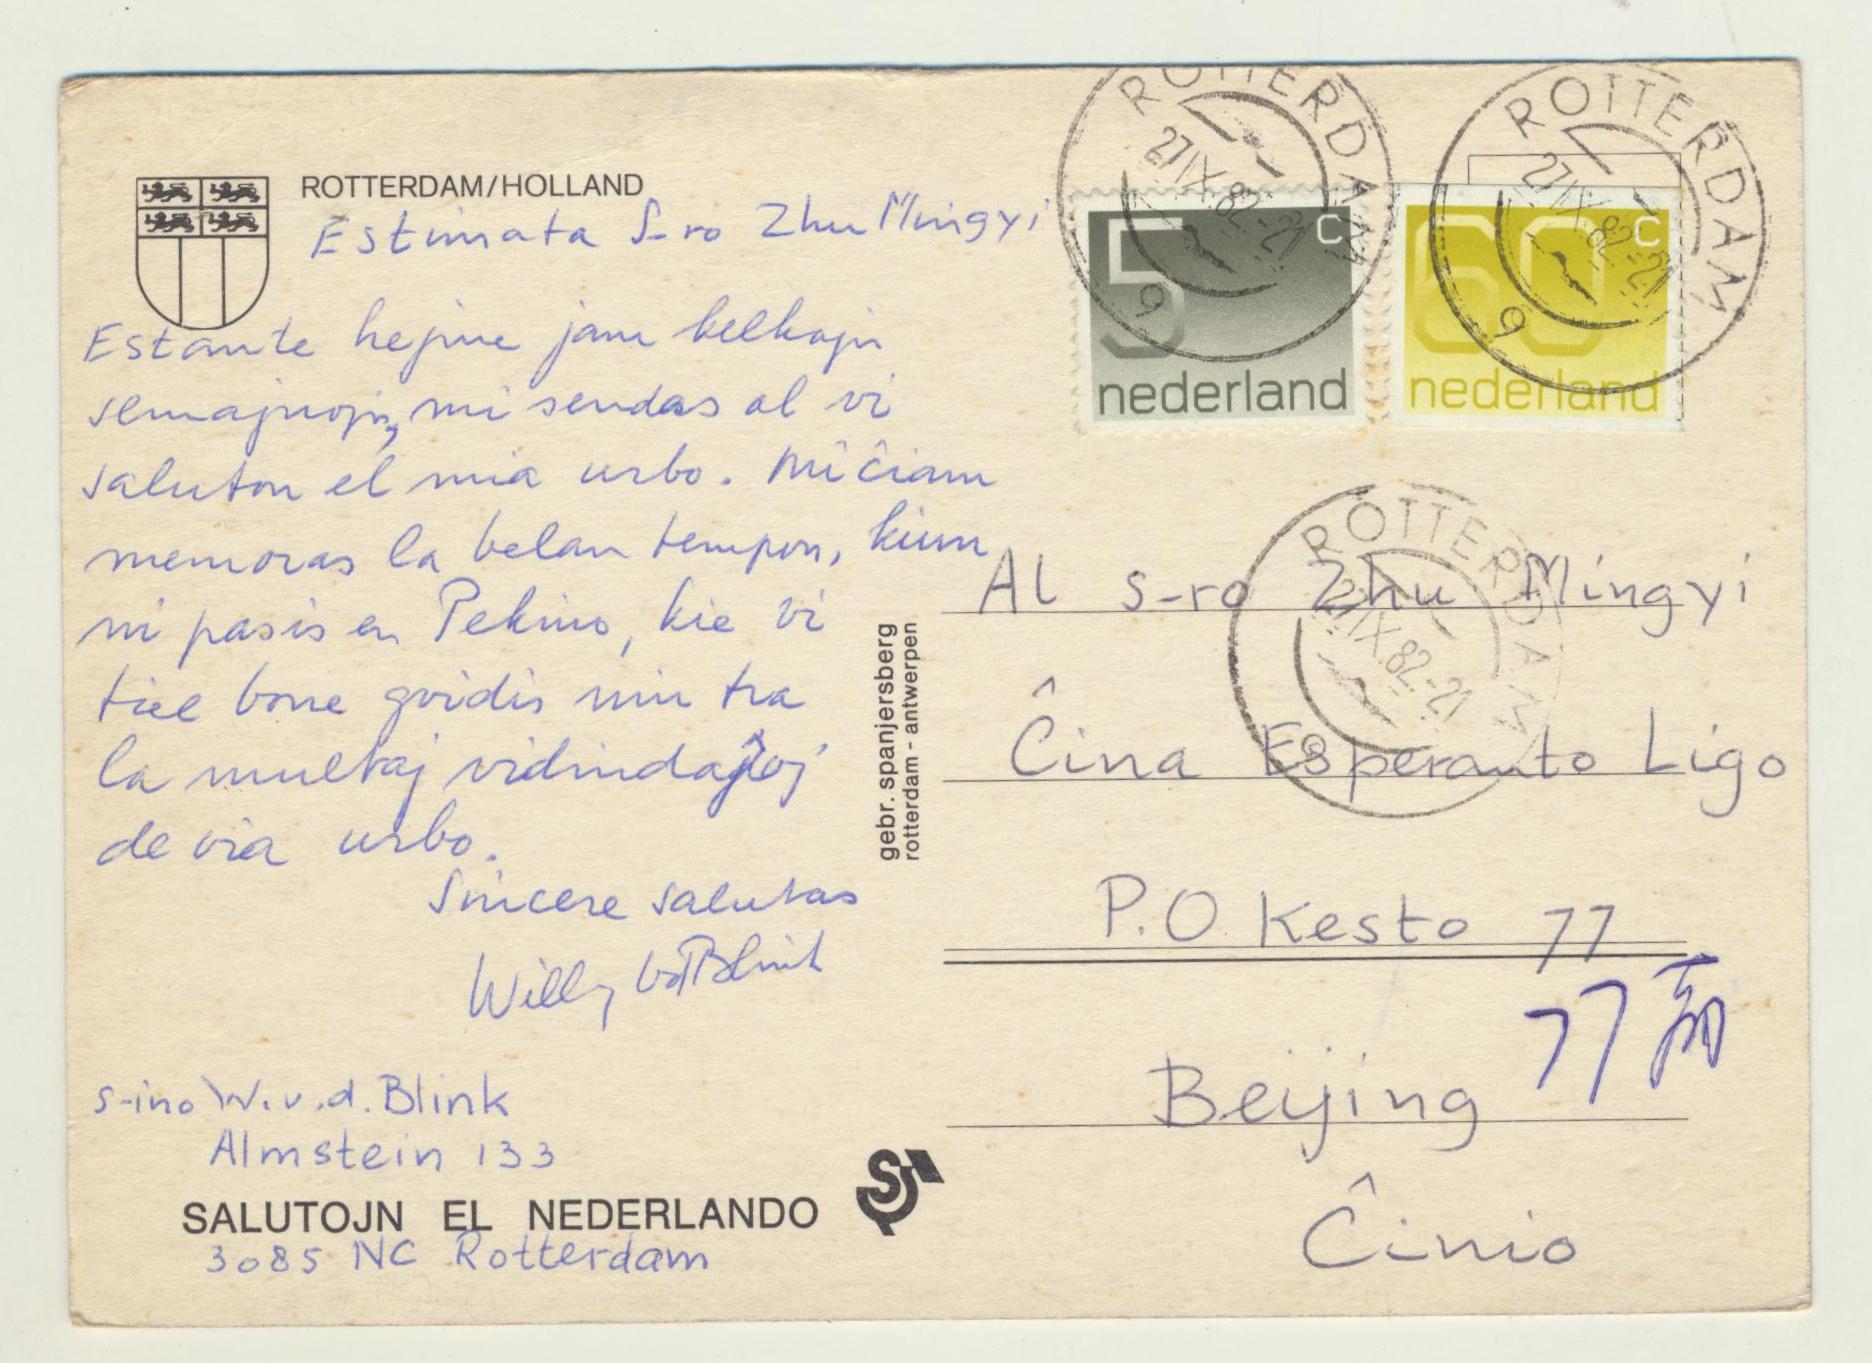 ROTTERDAM/HOLLAND
Estimata S-ro Zhu Mingyi
Estante hejme jam kelkajn
semajnojn, mi sendas al vi
saluton el mia urbo. Mi ĉiam
memoras la belan tempon, kiun
ni pasis en Pekino, kie vi
tiel bone gvidis nin tra
la multaj vidindaĵoj
de via urbo.
Sincere salutas
Willy vd Blink
s-ino W.v.d. Blink
Almstein 133
SALUTOJN EL NEDERLANDO
3085 NC Rotterdam
gebr. spanjersberg
rotterdam - antwerpen
ROTTERDAM
27 IX.82.-21
9
ROTTERDAM
27 IX.82.-21
9
5 c
nederland
60 c
nederland
ROTTERDAM
27 IX.82.-21
9
Al s-ro Zhu Mingyi
Ĉina Esperanto Ligo
P.O. Kesto 77
77
Beijing
Ĉinio